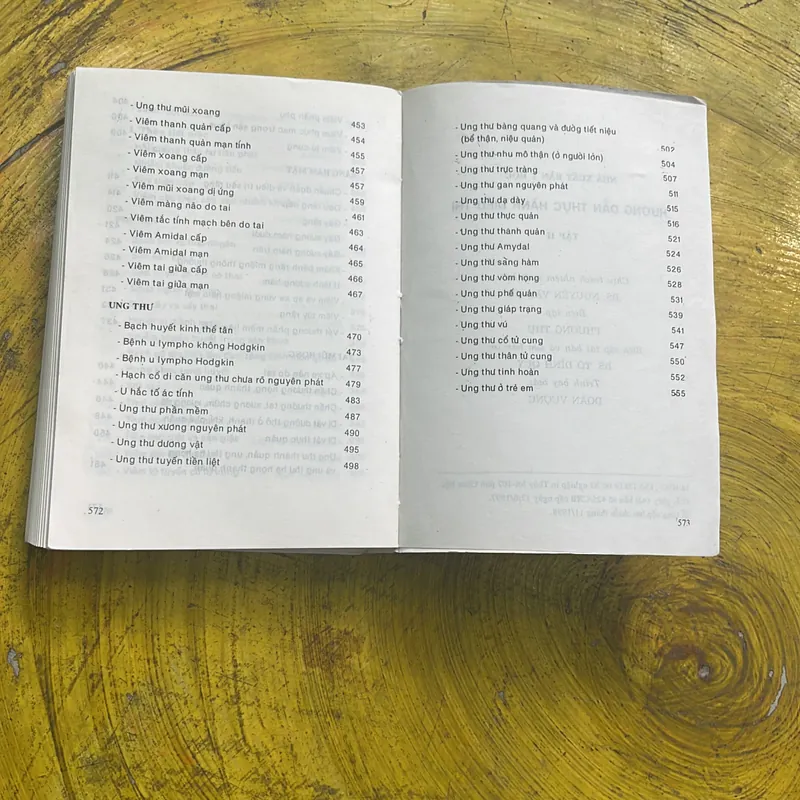 - Ung thư mũi xoang 453
- Viêm thanh quản cấp 454
- Viêm thanh quản mạn tính 455
- Viêm xoang cấp 457
- Viêm xoang mạn 457
- Viêm mũi xoang dị ứng 459
- Viêm màng não do tai 461
- Viêm tắc tĩnh mạch bên do tai 463
- Viêm Amidal cấp 464
- Viêm Amidal mạn 465
- Viêm tai giữa cấp 466
- Viêm tai giữa mạn 467
UNG THƯ
- Bạch huyết kinh thể tân 470
- Bệnh u lympho không Hodgkin 473
- Bệnh u lympho Hodgkin 477
- Hạch cổ di căn ung thư chưa rõ nguyên phát 479
- U hắc tố ác tính 483
- Ung thư phần mềm 487
- Ung thư xương nguyên phát 490
- Ung thư dương vật 495
- Ung thư tuyến tiền liệt 498
572
- Ung thư bàng quang và đuờg tiết niệu
(bể thận, niệu quản) 502
- Ung thư nhu mô thận (ở người lớn) 504
- Ung thư trực tràng 507
- Ung thư gan nguyên phát 511
- Ung thư dạ dày 515
- Ung thư thực quản 516
- Ung thư thanh quản 521
- Ung thư Amydal 524
- Ung thư sàng hàm 526
- Ung thư vòm họng 528
- Ung thư phế quản 531
- Ung thư giáp trạng 539
- Ung thư vú 541
- Ung thư cổ tử cung 547
- Ung thư thân tử cung 550
- Ung thư tinh hoàn 552
- Ung thư ở trẻ em 555
573